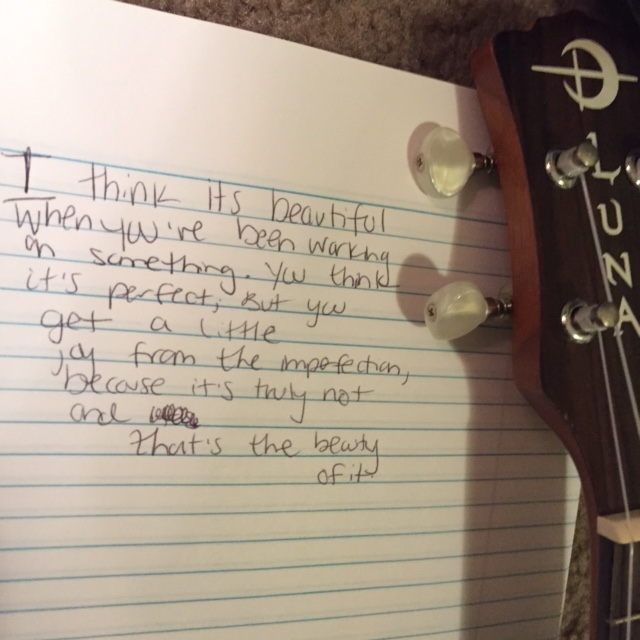 I think it's beautiful
when you've been working
on something. You think
it's perfect, but you
get a little
joy from the imperfection,
because it's truly not
and
that's the beauty
of it
LUNA